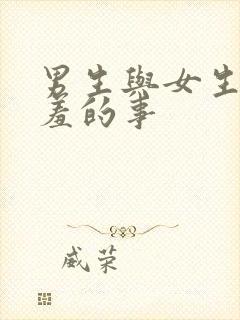 男生與女生
羞的事
威荣